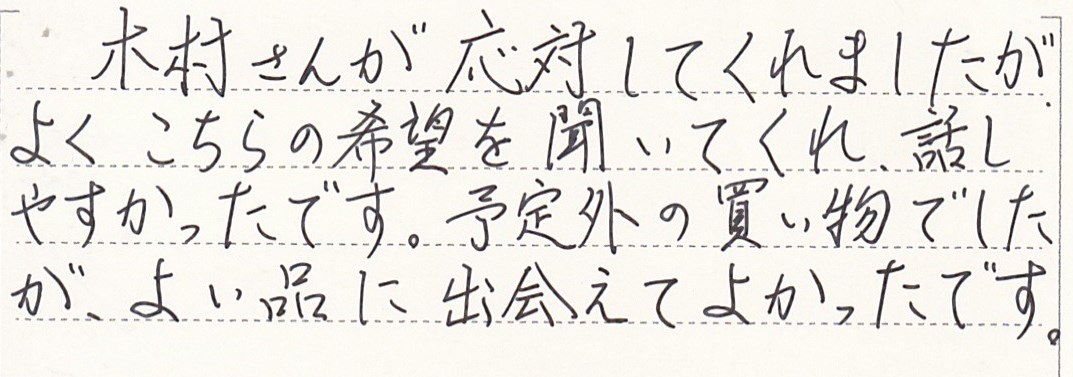 木村さんが応対してくれましたが、
よくこちらの希望を聞いてくれ、話し
やすかったです。予定外の買い物でした
が、よい品に出会えてよかったです。